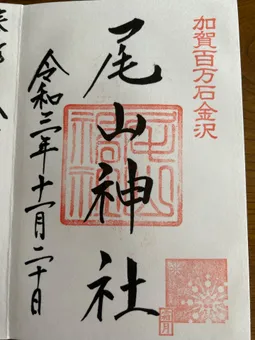 加賀百万石金沢
尾山神社
令和三年十一月二十日